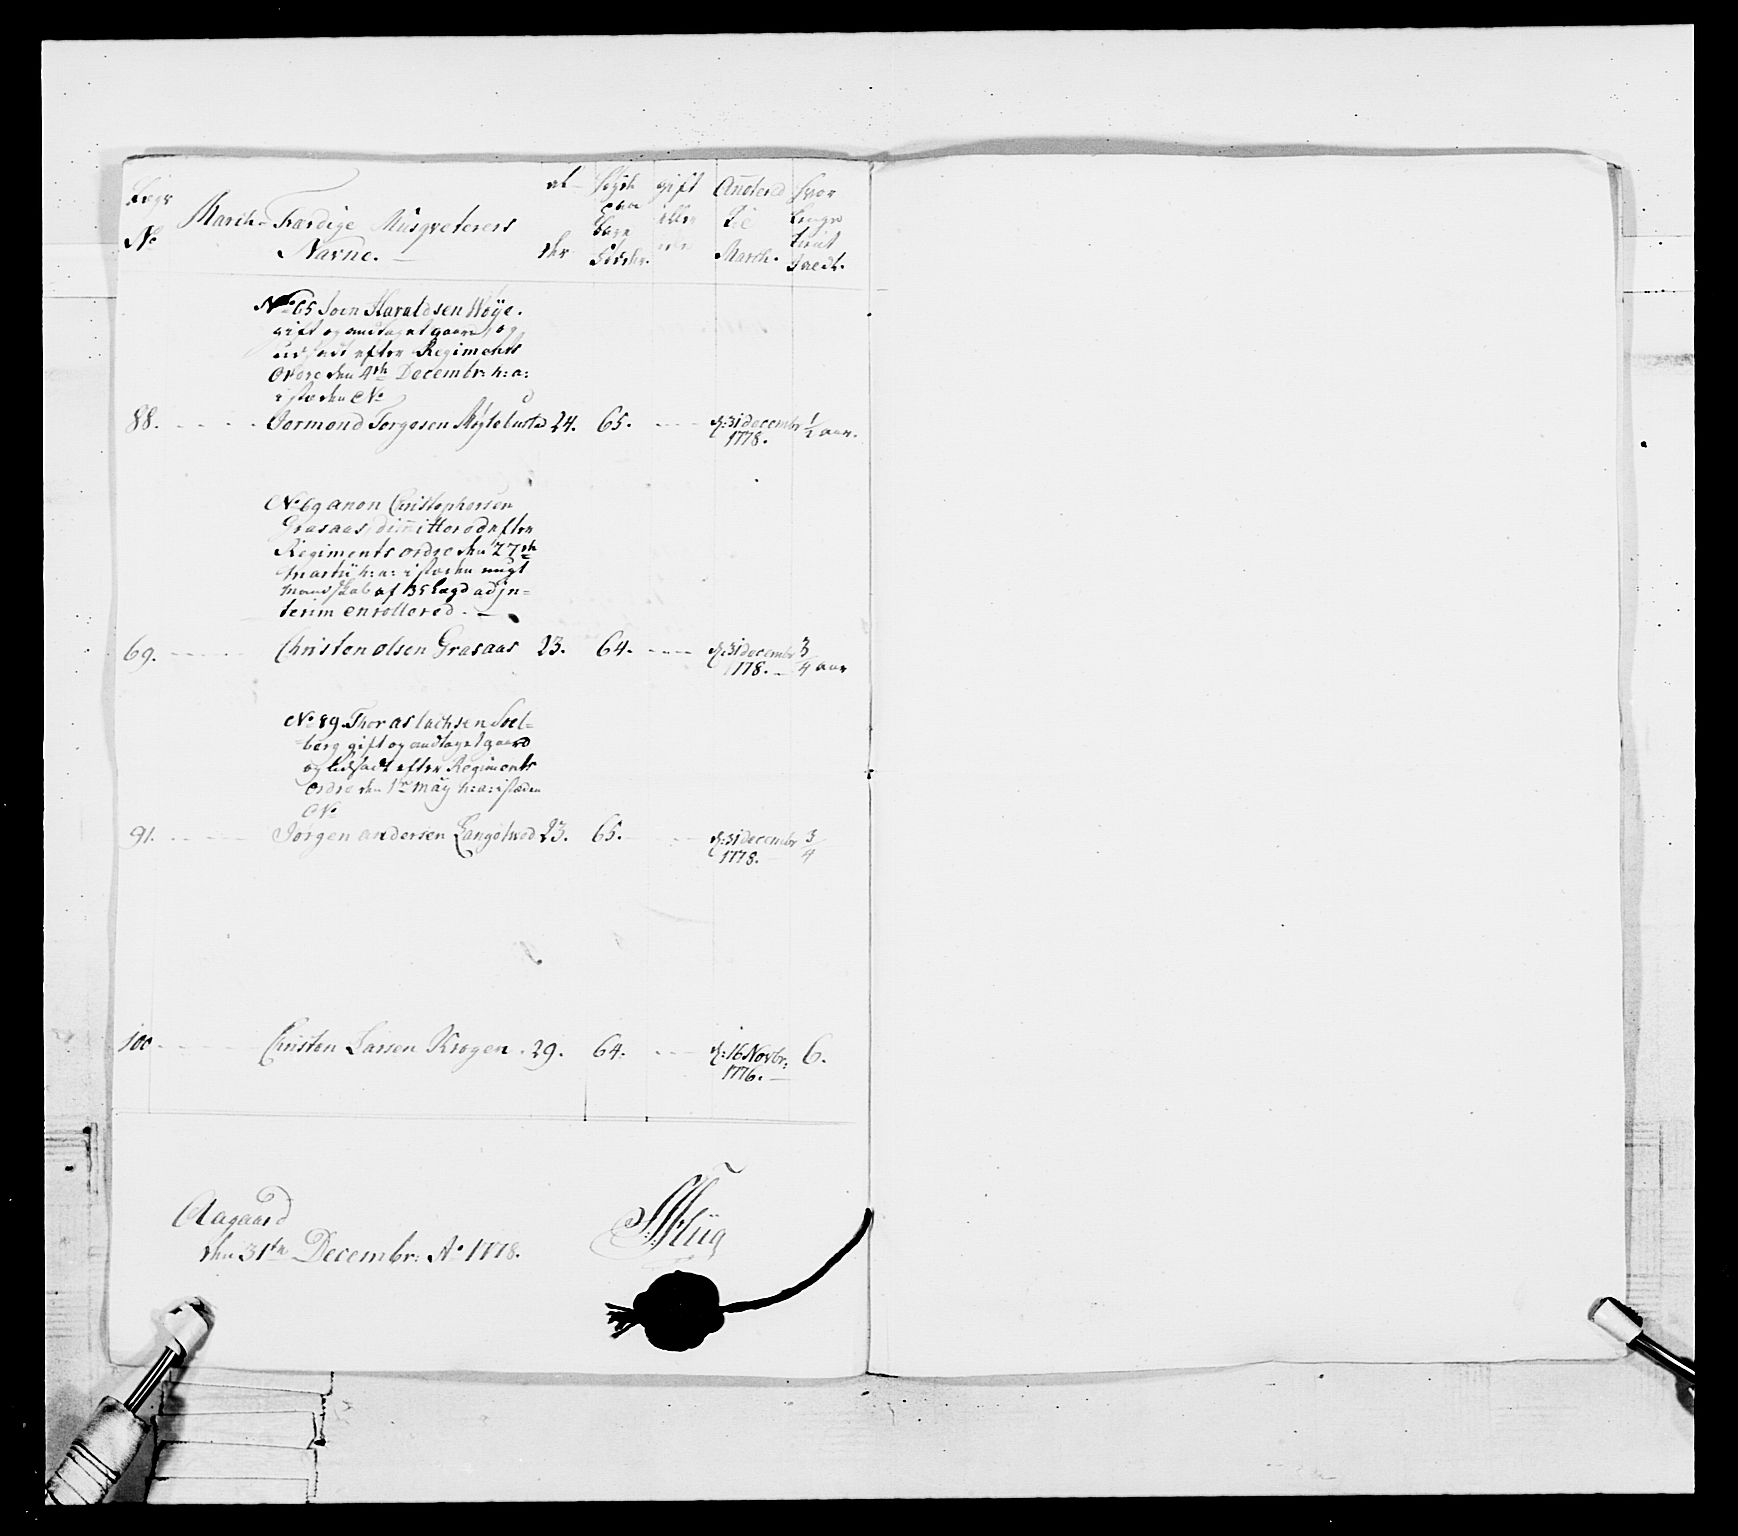 Lægs No March-Færdige Musqveterers Navne. al- der Høyde paa bare Fødder. gift eller ei Antered Til March. hvor længe tient
No 65 Joen Haraldsen Wøÿe.
gift og andtaget gaard, og
udsadt efter Regiments
Ordre den 4de Decembr: h: a:
i stæden No
88. Tormond Torgesen 24. 65. d: 31 decembr 1778. 1/2 aar.
No 69 anon Christophersen
Grasaas, dimitterod efter
Regiments ordre den 27de
Martii h: a: i stæden ungt
mandskab af 35 Lægd ad jn-
terim enrollered.
69. Christen olsen Grasaas 23. 64. d: 31 decembr 1778. 3/4 aar
No 89 Thor aslachsen Soel-
berg gift og andtaget gaard
og udsadt efter Regiments
Ordre den 1te Maÿ h: a: i stæden
No
91. Jørgen andersen 23. 65. d: 31 decembr 1778. 3/4
100 Christen Larsen Krogen. 29. 64. d: 16 Novbr: 1776. 6.
Aagaard
den 31te Decembr: Ao 1778.